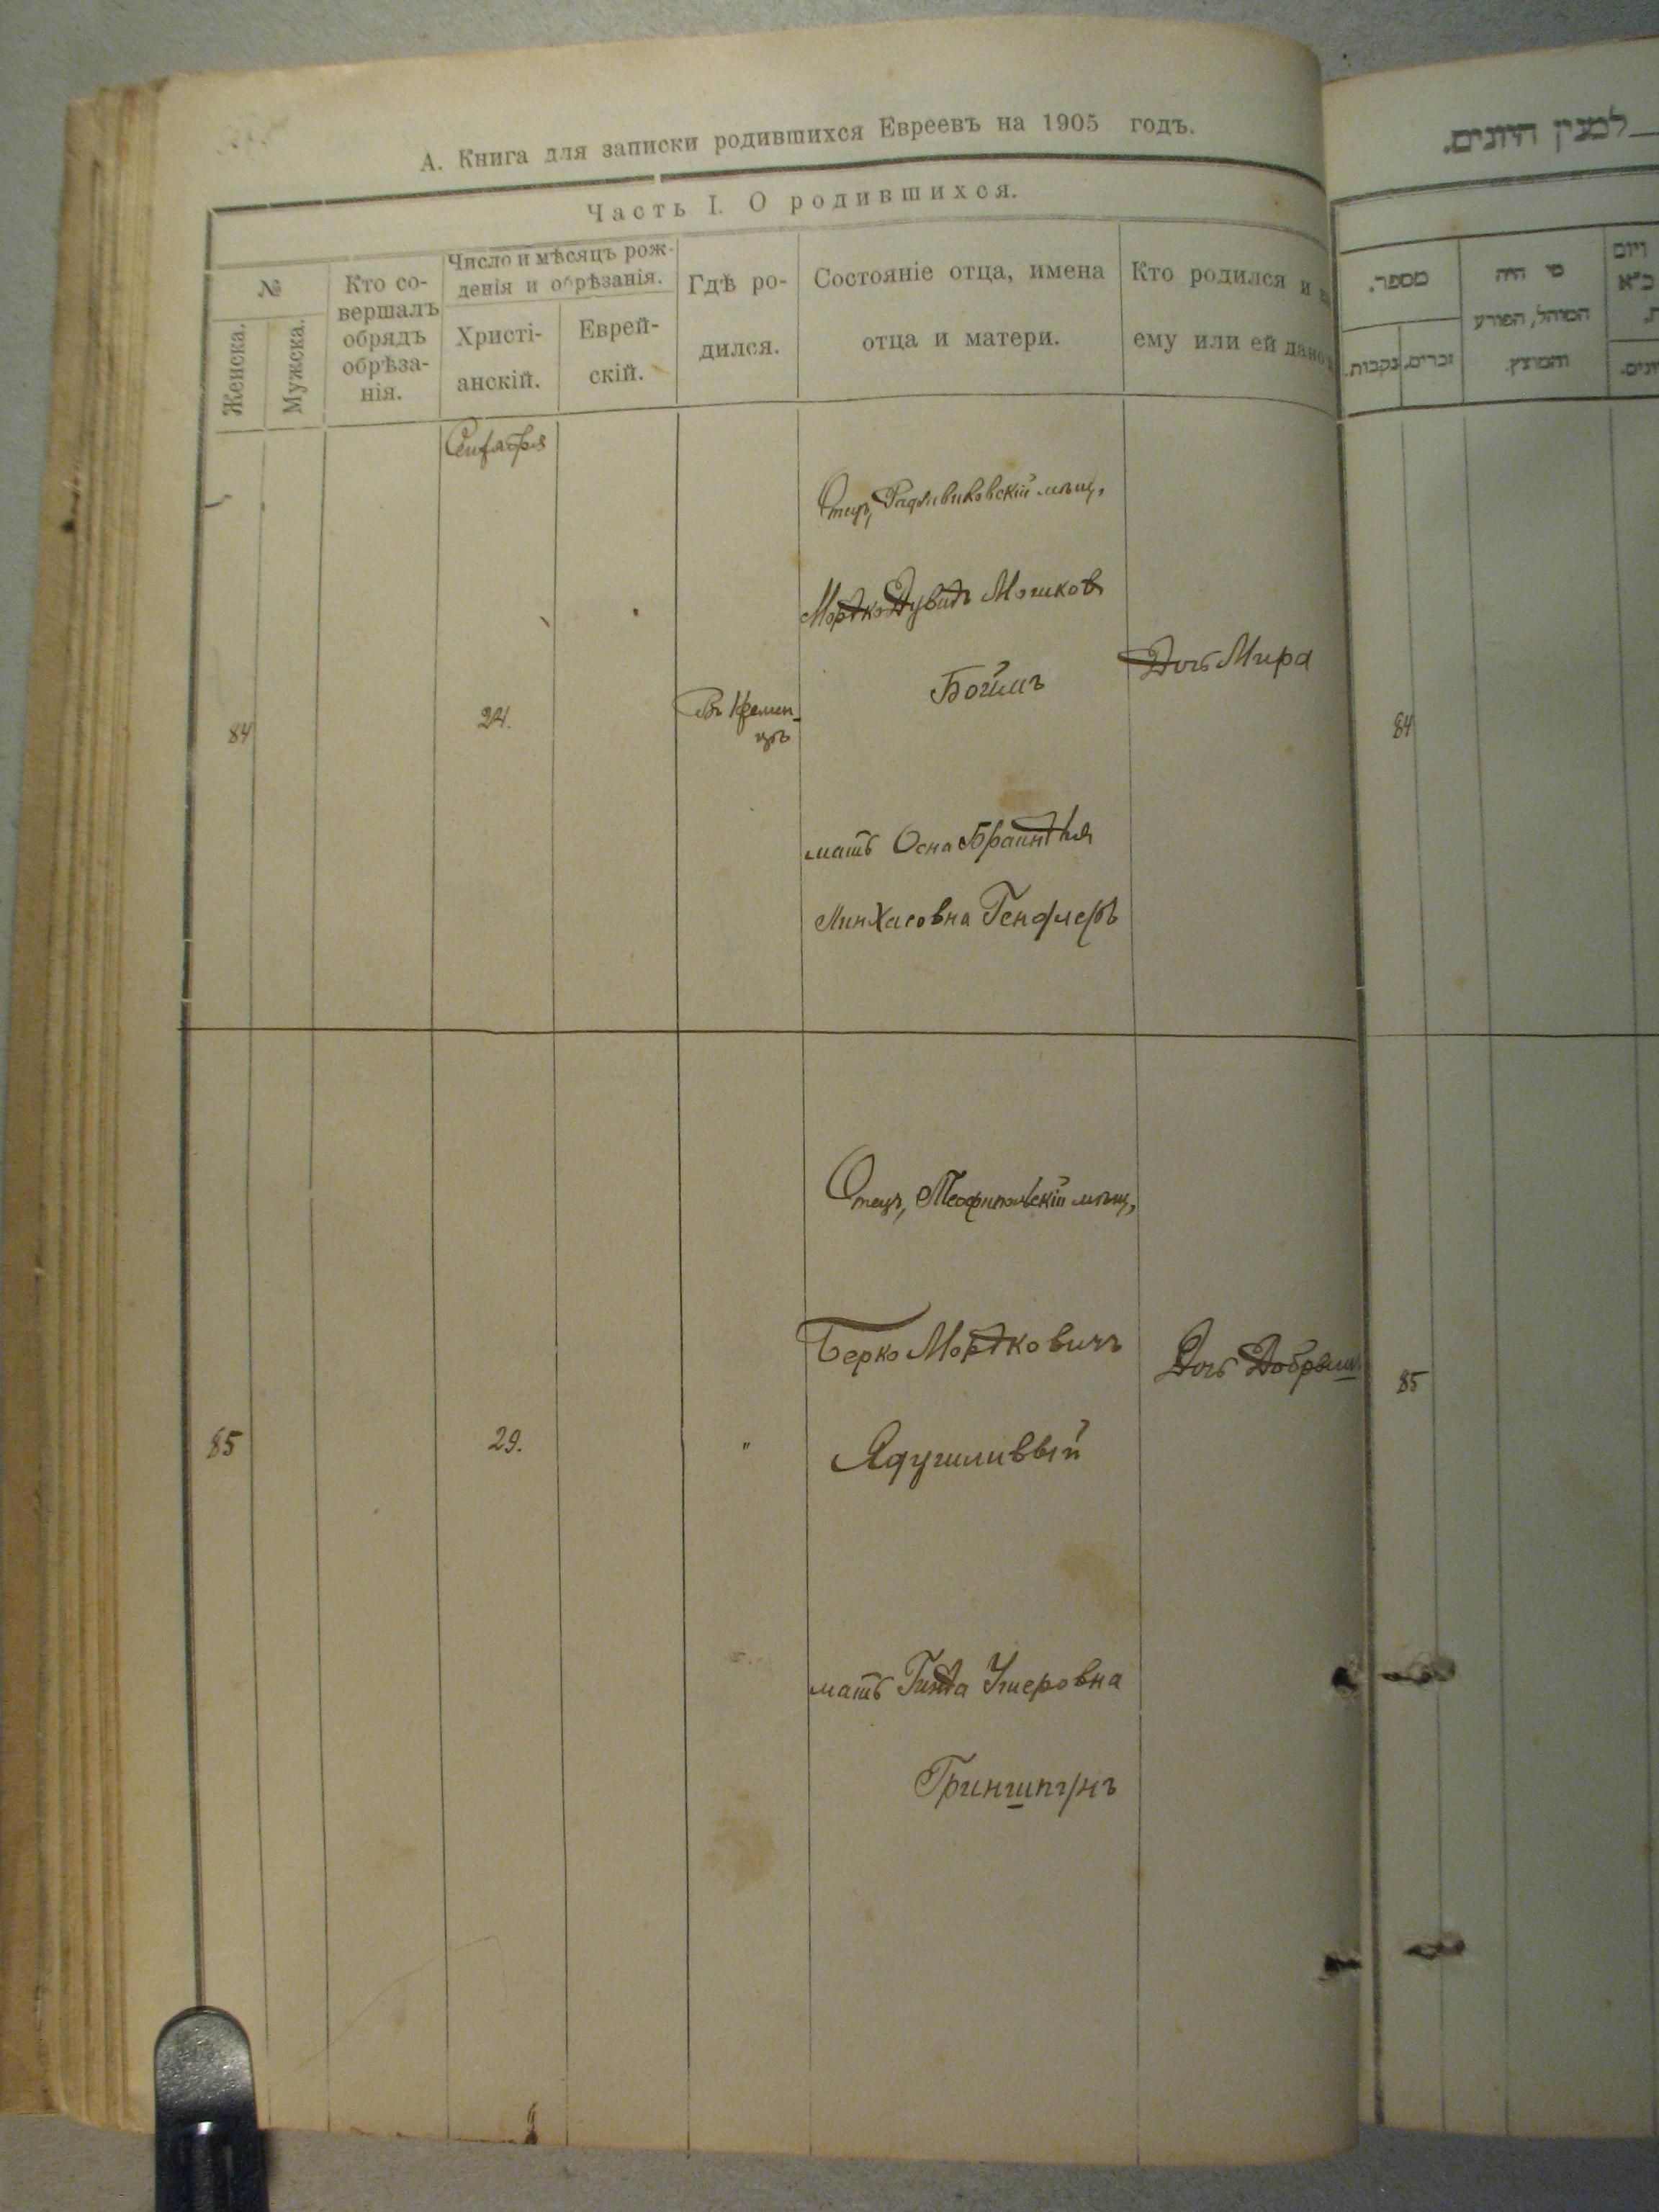 А. Книга для записки родившихся Евреевъ на 1905 годъ.
Часть I. О родившихся.
№
Женска.
Мужска.
Кто со-
вершалъ
обрядъ
обрѣза-
нія.
Число и мѣсяцъ рож-
денія и обрѣзанія.
Христі-
анскій.
Еврей-
скій.
Гдѣ ро-
дился.
Состояніе отца, имена
отца и матери.
Кто родился и
ему или ей дано
Сентября
84
24.
Въ Кремен-
цѣ
Отецъ, Радзивиловскій мѣщ,
Мордко Дувидъ Мошковъ
Боймъ
мать Осна Брайндля
Пинхасовна Гендлеръ
Дочь Мира
85
29.
"
Отецъ, Теофипольскій мѣщ,
Берко Мордковичъ
Ядушливый
мать Гитля Ушеровна
Гриншпунъ
Дочь Добрыш
למנין היונים.
מספר.
זכרים.
נקבות.
מי היה
המוהל, הפורע
והמוצץ.
ויום
84
85